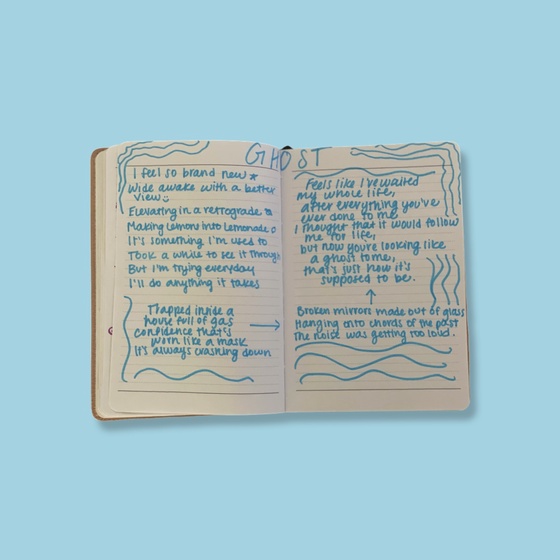 GHOST
I feel so brand new
Wide awake with a better
view
Elevating in a retrograde
Making lemons into lemonade
It's something I'm used to
Took a while to see it through
But I'm trying everyday
I'll do anything it takes
Trapped inside a
house full of gas
confidence that's
worn like a mask
It's always crashing down
Feels like I've waited
my whole life,
after everything you've
ever done to me
I thought that it would follow
me for life,
but now you're looking like
a ghost to me,
that's just how it's
supposed to be.
Broken mirrors made out of glass
Hanging onto chords of the past
The noise was getting too loud.